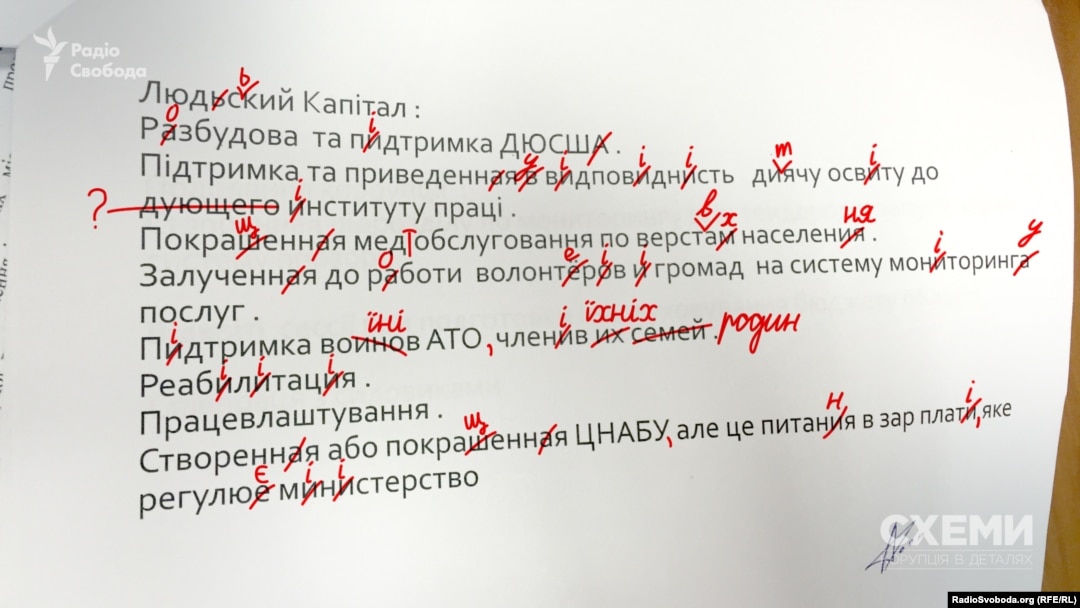 Радіо
Свобода
ь
Людьский Капітал :
о і
Разбудова та пидтримка ДЮСША .
у і і і т і
Підтримка та приведенная в видповиднисть диячу освиту до
? і
дующего институту праці .
щ в х ня
Покрашенная медтобслуговання по верстам населения .
о е і і і у
Залученная до работи волонтёров и громад на систему мониторинга
послуг .
і їні і їхніх
Пидтримка воинов АТО, членив их семей . родин
і і і
Реабилитация .
Працевлаштування .
щ н і
Створенная або покрашенная ЦНАБУ, але це питания в зар плати, яке
є і і
регулюе министерство
СХЕМИ
КОРУПЦІЯ В ДЕТАЛЯХ
RadioSvoboda.org (RFE/RL)